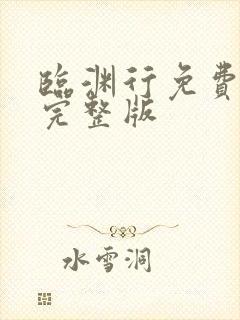 臨渊行免費
完整版
水雪洞